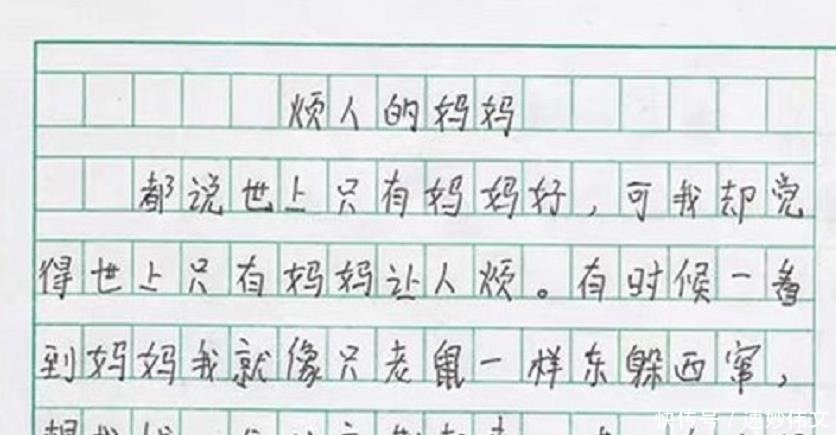 烦人的妈妈
都说世上只有妈妈好，可我却觉
得世上只有妈妈让人烦。有时候一看
到妈妈我就像只老鼠一样东躲西窜，
快传号／速妙伟文